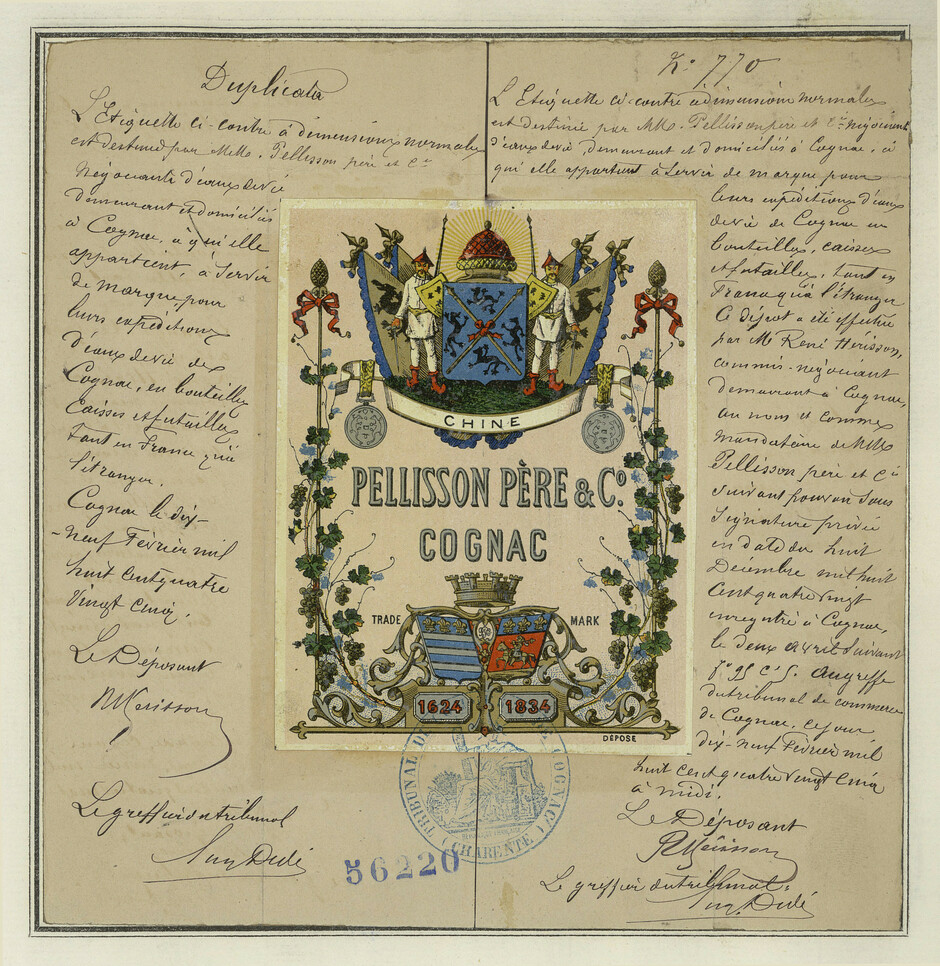 Duplicata
L'Etiquette ci-contre à dimensions normales
est destinée par MM. Pellisson père et Cie
négociants d'eaux de vie
demeurant et domiciliés
à Cognac, à qui elle
appartient, à servir
de marque pour
leurs expéditions
d'eaux de vie de
Cognac, en bouteilles
Caisses et futailles
tant en France qu'à
l'étranger.
Cognac le dix-
-neuf Février mil
huit cent quatre
vingt cinq.
Le Déposant
Le greffier du tribunal
No 770
L'Etiquette ci-contre à dimensions normales
est destinée par MM. Pellisson père et Cie négociants
d'eaux de vie, demeurant et domiciliés à Cognac, à
qui elle appartient à servir de marque pour
leurs expéditions d'eaux
de vie de Cognac en
bouteilles, caisses
et futailles, tant en
France qu'à l'étranger
Ce dépôt a été effectué
par M René Hérisson,
commis-négociant
demeurant à Cognac,
au nom et comme
mandataire de MM
Pellisson père et Cie
suivant pouvoir sous
signature privée
en date du huit
Décembre mil huit
cent quatre vingt
enregistré à Cognac,
le deux avril suivant
fo 95 c 5. au greffe
du tribunal de commerce
de Cognac, ce jour
dix-neuf Février mil
huit cent quatre vingt cinq
à midi.
Le Déposant
R Hérisson
Le greffier du tribunal
CHINE
PELLISSON PÈRE & Co.
COGNAC
TRADE MARK
1624 1834
DÉPOSÉ
TRIBUNAL DE COGNAC
(CHARENTE)
56220